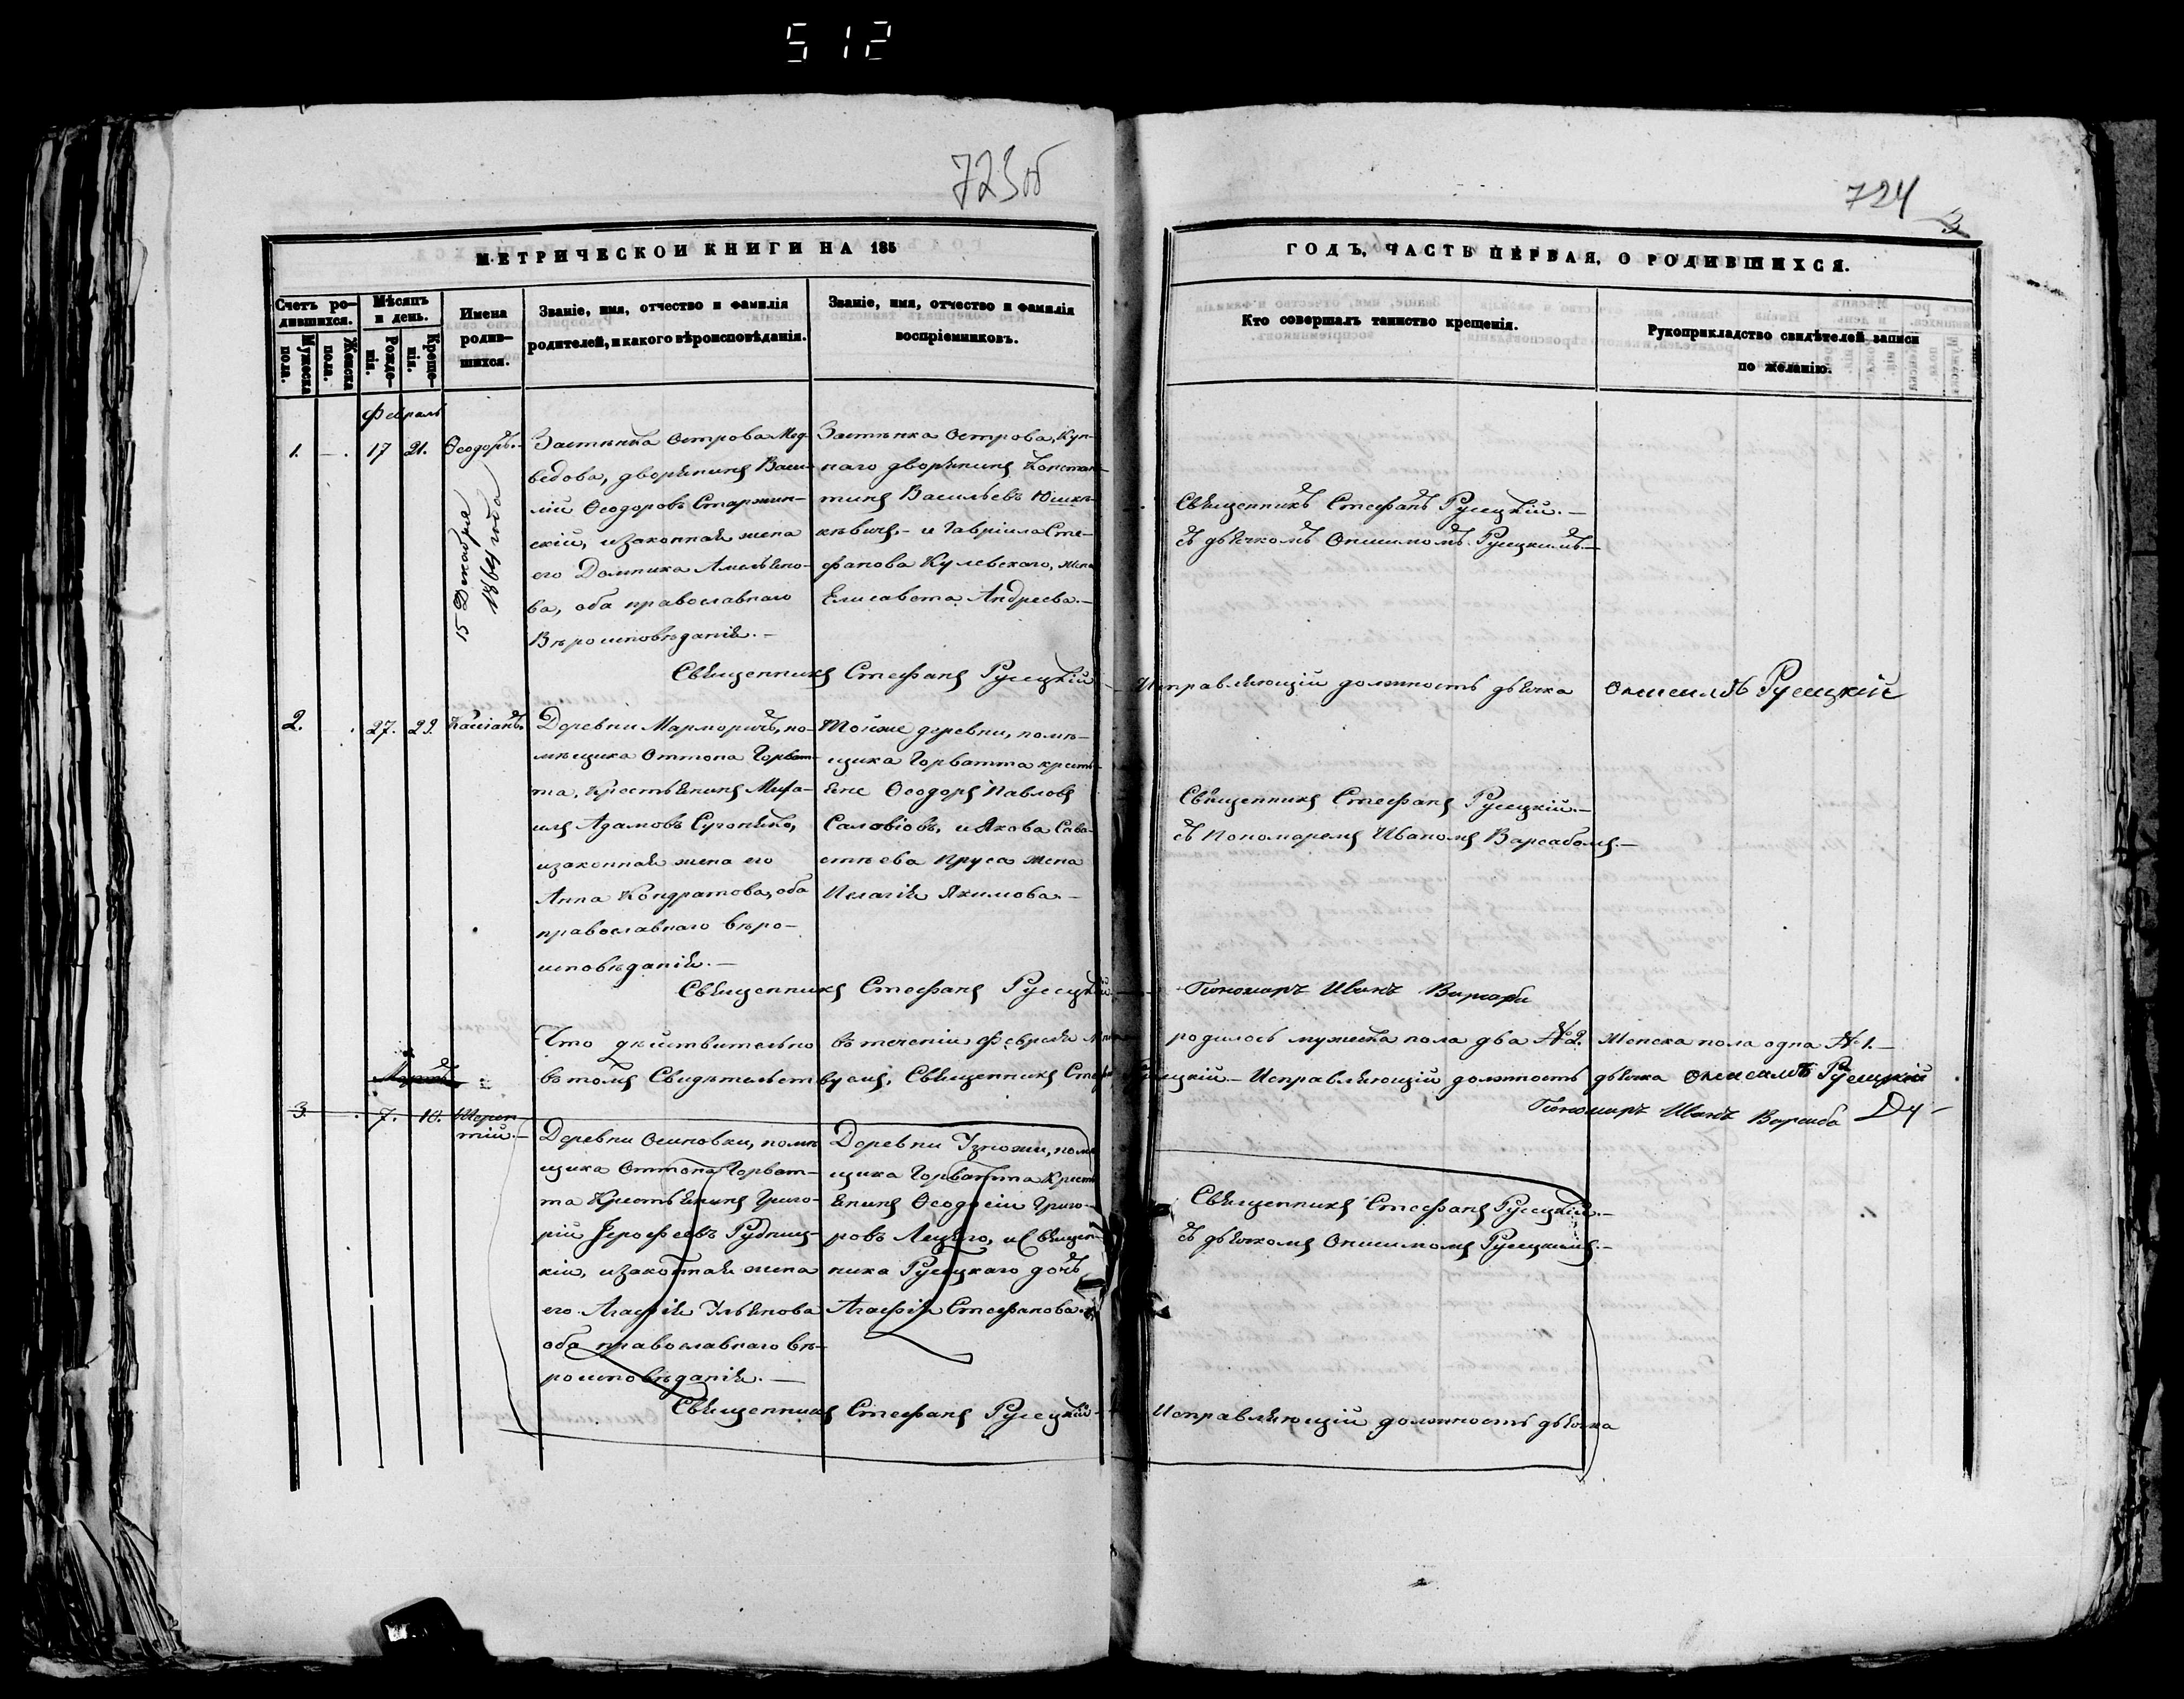 512
723об
724
3
МЕТРИЧЕСКОЙ КНИГИ НА 185
Счетъ ро-
дившихся.
Мужеска пола.
Женска пола.
Мѣсяцъ
и день.
Рожде-
нія.
Креще-
нія.
Имена
родив-
шихся.
Званіе, имя, отчество и фамилія
родителей, и какого вѣроисповѣданія.
Званіе, имя, отчество и фамилія
воспріемниковъ.
ГОДЪ, ЧАСТЬ ПЕРВАЯ, О РОДИВШИХСЯ.
Кто совершалъ таинство крещенія.
Рукоприкладство свидѣтелей записи
по желанію.
Февраль
1. 17 21. Ѳеодоръ.
15 Декабря
1864 года
Застѣнка Острова Мед-
ведова, дворянинъ Васи-
лій Ѳеодоровъ Старжин-
скій, и законная жена
его Домника Амельяно-
ва, оба православнаго
Вѣроисповѣданія.
Застѣнка Острова,
наго дворянинъ Констан-
тинъ Васильевъ
и Гавріила Сте-
фанова Кулевскаго, жена
Елисавета Андреева.
Священникъ Стефанъ Русецкій.
съ дьячкомъ Онисимомъ Русецкимъ.
Священникъ Стефанъ Русецкій
Исправляющій должность дьячка Онисимъ Русецкій
2. 27. 29. Касіанъ.
Деревни Марморичъ, по-
мѣщика Оттона Горват-
та, крестьянинъ Миха-
илъ Адамовъ
и законная жена его
Анна Кондратова, оба
православнаго вѣро-
исповѣданія.
Тойже деревни, помѣ-
щика Горватта кресть-
яне Ѳеодоръ Павловъ
и Якова Сава-
стѣева Пруса жена
Пелагія Якимова.
Священникъ Стефанъ Русецкій.
съ Пономаремъ Иваномъ
Священникъ Стефанъ Русецкій.
Пономарь Иванъ
Что дѣйствительно въ теченіи Февраля
родилось мужеска пола два №2. Женска пола одна №1.
въ томъ Свидѣтельствуемъ, Священникъ Стефанъ
Русецкій. Исправляющій должность дьячка Онисимъ Русецкій
Пономарь Иванъ
Мартъ
3. 7. 10.
Деревни Осиповки, помѣ-
щика Оттона Горват-
та Крестьянинъ Григо-
рій Іерофеевъ Рудниц-
кій, и законная жена
его Агафія Ульянова
оба православнаго вѣ-
роисповѣданія.
Деревни Узножи, помѣ-
щика Горватта Кресть-
янинъ Ѳеодосій Григо-
ровъ и Священ-
ника Русецкаго дочь
Агафія Стефанова.
Священникъ Стефанъ Русецкій.
съ дьячкомъ Онисимомъ Русецкимъ.
Священникъ Стефанъ Русецкій
Исправляющій должность дьячка